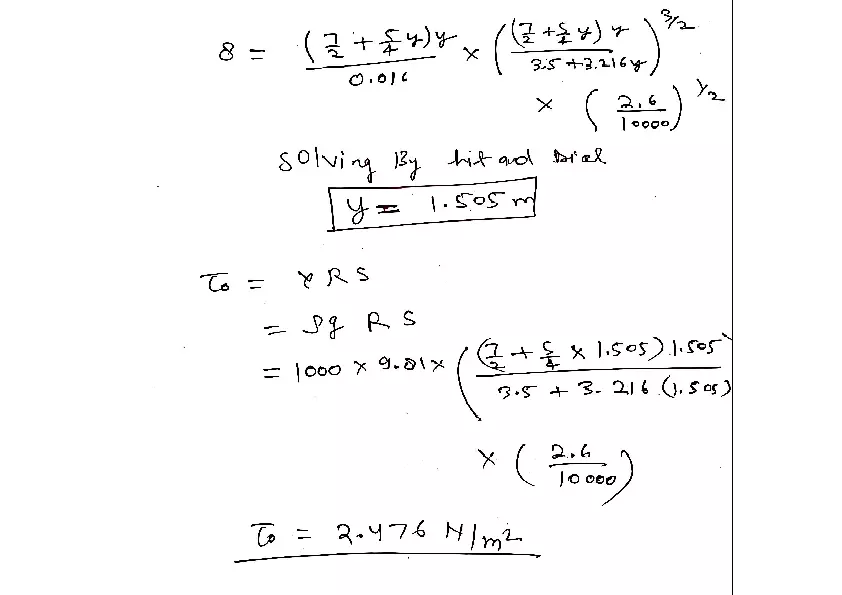 8 = (7/2 + 5/4 y) y / 0.016 × ((7/2 + 5/4 y) y / 3.5 + 3.216 y)^3/2
× (2.6 / 10000)^1/2
Solving By hit and trial
y = 1.505 m
τ₀ = γ R S
= ρg R S
= 1000 × 9.81 × ((7/2 + 5/4 × 1.505) 1.505 / 3.5 + 3.216 (1.505)
× (2.6 / 10000)
τ₀ = 2.476 N/m²